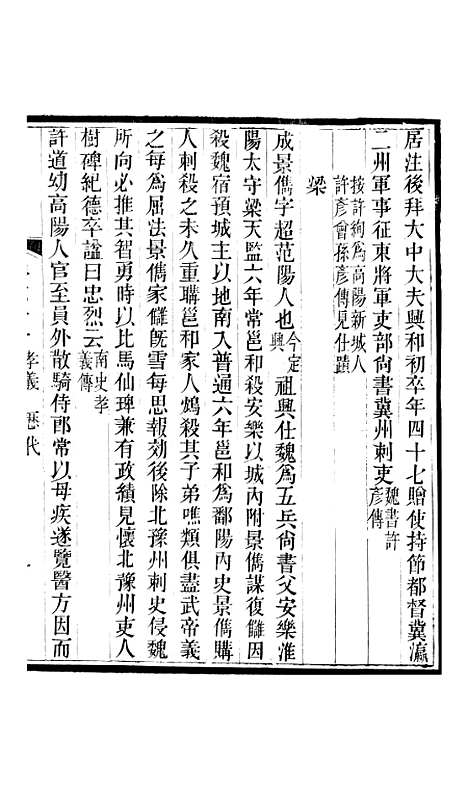 居注後拜大中大夫興和初卒年四十七贈使持節都督冀瀛
二州軍事征東將軍吏部尚書冀州刺吏魏書許彥傳
按許絢爲高陽新城人
許彥會孫彥傳見仕蹟
梁
成景儁字超范陽人也今定興祖興仕魏爲五兵尚書父安樂淮
陽太守梁天監六年常邕和殺安樂以城內附景儁謀復讎因
殺魏宿預城主以地南入普通六年邕和爲鄱陽內史景儁購
人刺殺之未久重購邕和家人鴆殺其子弟噍類俱盡武帝義
之每爲屈法景儁家讎旣雪每思報効後除北豫州刺史侵魏
所向必推其智勇時以比馬仙琕兼有政績見懷北豫州吏人
樹碑紀德卒諡曰忠烈云南史孝義傳
許道幼高陽人官至員外散騎侍郎常以母疾遂覽醫方因而
孝義 歷代